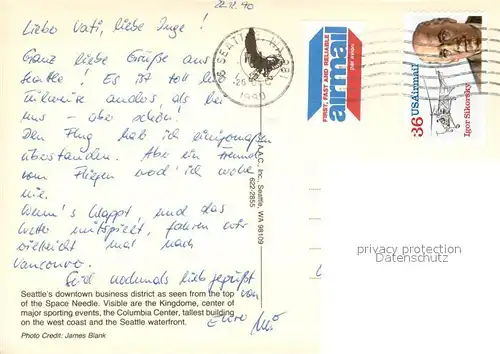 22.12.90
Liebo Vati, liebe Inge!
Ganz liebe Grüße aus
Seattle. Es ist toll hie
Teilweise anders, als bei
uns - aber schön!
Den Flug hab ich einigermaßen
überstanden. Aber ein Freund
vom Fliegen werd' ich wohl
nie.
Wenn's klappt, und das
Wetter mitspielt, fahren wir
vielleicht mal nach
Vancouver.
Seid nochmals lieb gegrüßt
von
Eurer
SEATTLE, WA
1990
FIRST, FAST AND RELIABLE
airmail
par avion
36 USAirmail
Igor Sikorsky
A.A.C., Inc., Seattle, WA 98109
622-2855
privacy protection
Datenschutz
Seattle's downtown business district as seen from the top
of the Space Needle. Visible are the Kingdome, center of
major sporting events, the Columbia Center, tallest building
on the west coast and the Seattle waterfront.
Photo Credit: James Blank